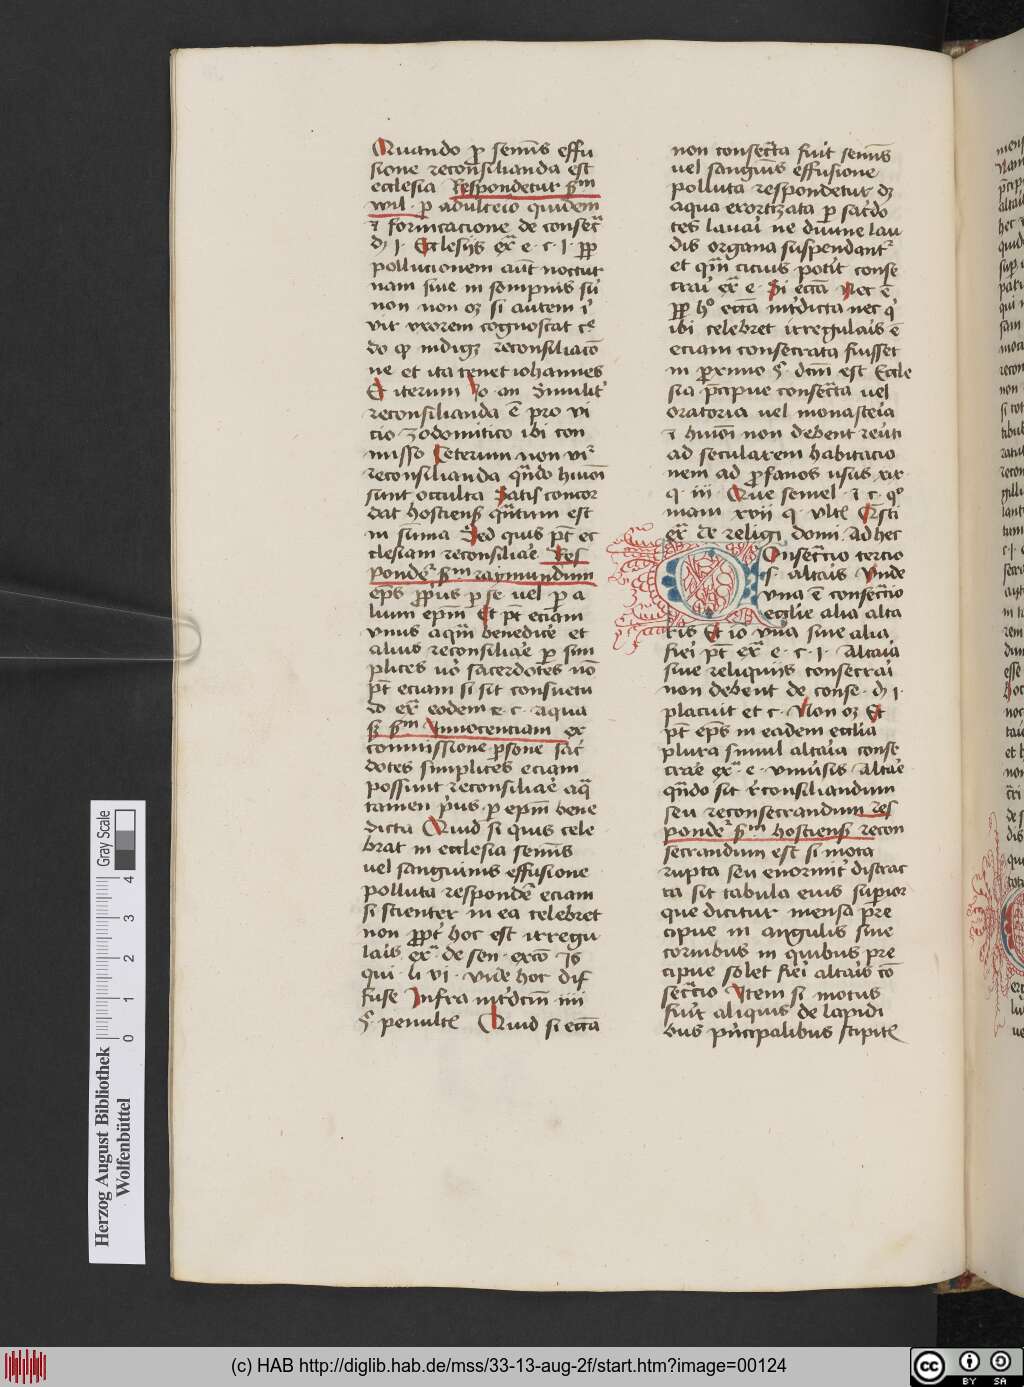 Quando ꝑ semīs effu
sione reconsilianda est
ecclesia Respondetur ẜm
wil · ꝑ adulteio quidem
⁊ fornicacione de consec̄
di · i · Ecclesijs ex̄ e · c · i · ꝓp
pollucionem aūt noctur
nam siue in sompnis sū
non non oꝫ si autem
vir vxorem cognoscat
do ꝙ indigꝫ reconsiliacō
ne et ita tenet iohannes
Et iterum Io · an Similit̄
reconsilianda ē pro vi
cio zodomitico ibi con
misso Ceterum non vr̄
reconsilianda qn̄do hmōi
sunt occulta Satis concor
dat hostienß qn̄tum est
in sūma Sed quis pt̄ ec
clesiam reconsiliar̄e Res
ponder̄ ẜm raymundum
ep̄s ꝓpius ꝑ se vel ꝑ a
lium ep̄m Et pt̄ eciam
vnus aquā benedicer̄e et
alius reconsiliar̄e ꝑ sim
plices vō sacerdotes nō
pt̄ eciam si sit consuetu
do ex̄ eodem e · c · aqua
sꝫ ẜm Innocenciam ex
commissione ꝑsone sac̄
dotes simplices eciam
possunt reconsiliar̄e aq̄
tamen pius · ꝑ ep̄m bene
dicta Quid si quis cele
brat in ecclesia semīs
uel sanguinis effusione
polluta respondē eciam
si scienter in ea celebret
non ꝓpt̄ hoc est irregu
laris ex̄ · de sen · excō Is
qui · li vi · vide hoc dif
fuse Infra int̄dcm̄ iiii
§ penultē Quid si eccā
non consecrata fuit semīs
uel sanguīs effusione
polluta respondetur qꝫ
aqua exorcizata ꝑ sacdo
tes lauari ne diuine lau
dis organa suspendant̄
et qm̄ cicius poterit conse
crari ex̄ e · Si eccā Nec ē
ꝓp hº eccā int̄dicta nec q̄
ibi celebret irregularis ē
eciam consecrata fuisset
in proximo § · dcm̄ est Eccle
sia p̄cipue consecrata uel
oratoria uel monasteria
⁊ hmōi non debent reuti
ad secularem habitacio
nem ad ꝓfanos usus xix
q · iii · Que semel · ⁊ c · qº
niam xvii q · vltē
ex̄ de religi domi Ad hec
Onsecracio tercio
s · altaris Vnde
vna ē consecracio
ecclie alia alta
ris Et iō vna siue alia
fieri pt̄ ex̄ e · c · i · Altaria
siue reliquijs consecrari
non debent de conse · di i ·
placuit et c · Non oꝫ Et
pt̄ ep̄s in eadem ecclia
plura simul altaria conse
crare ex̄ · e · vniuersis Altare
qn̄do sit reconsiliandum
seu reconsecrandum res
ponder̄ ẜm hostienß recon
secrandum est si mota
rupta seu enormit̄ distrac
ta sit tabula eius superior
que dicitur mensa p̄re
cipue in angulis siue
cornibus in quibus pre
cipue solet fieri altaris cō
secracio Item si motus
fuerit aliquis de lapidi
bus principalibus stipitē
Gray Scale
4
3
2
1
0
Herzog August Bibliothek
Wolfenbüttel
(c) HAB http://diglib.hab.de/mss/33-13-aug-2f/start.htm?image=00124
cc
BY SA